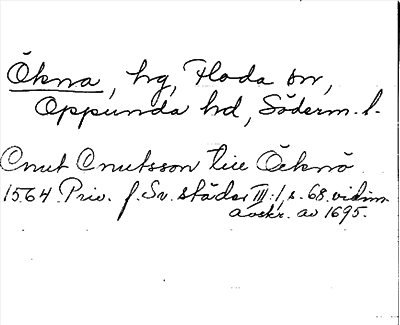 Ökna, hg, Floda sn,
Oppunda hd, Söderm. l.
Cnut Cnutsson till Öcknö
1564 Priv. f. Sv. städer III:1, s. 68. vidim.
avskr. av 1695.